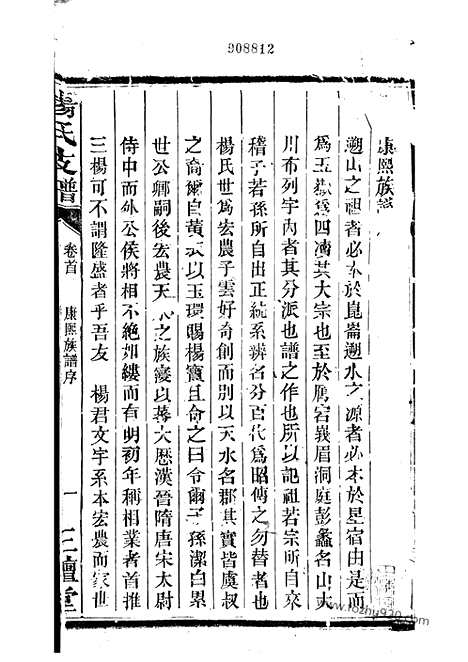 908812
康熙族譜
遡山之祖者必本於崑崙遡水之源者必本於星宿由是而
為五嶽為四瀆其大宗也至於鴈宕峩眉洞庭彭蠡名山大
川布列宇內者其分派也譜之作也所以記祖若宗所自來
稽子若孫所自出正統系辨名分百代為昭傳之勿替者也
楊氏世為宏農子雲好奇創而別以天水名郡其實皆虞叔
之裔爾自黃衣以玉環賜楊寶且命之曰令爾子孫潔白累
世公卿嗣後宏農天水之族寖以蕃大歷漢晉隋唐宋太尉
侍中而外公侯將相不絶如縷而有明初年稱相業者首推
三楊可不謂隆盛者乎吾友 楊君文宇系本宏農而家世
楊氏支譜
卷首
康熙族譜序
一
三鱣堂
www.fozhu920.com